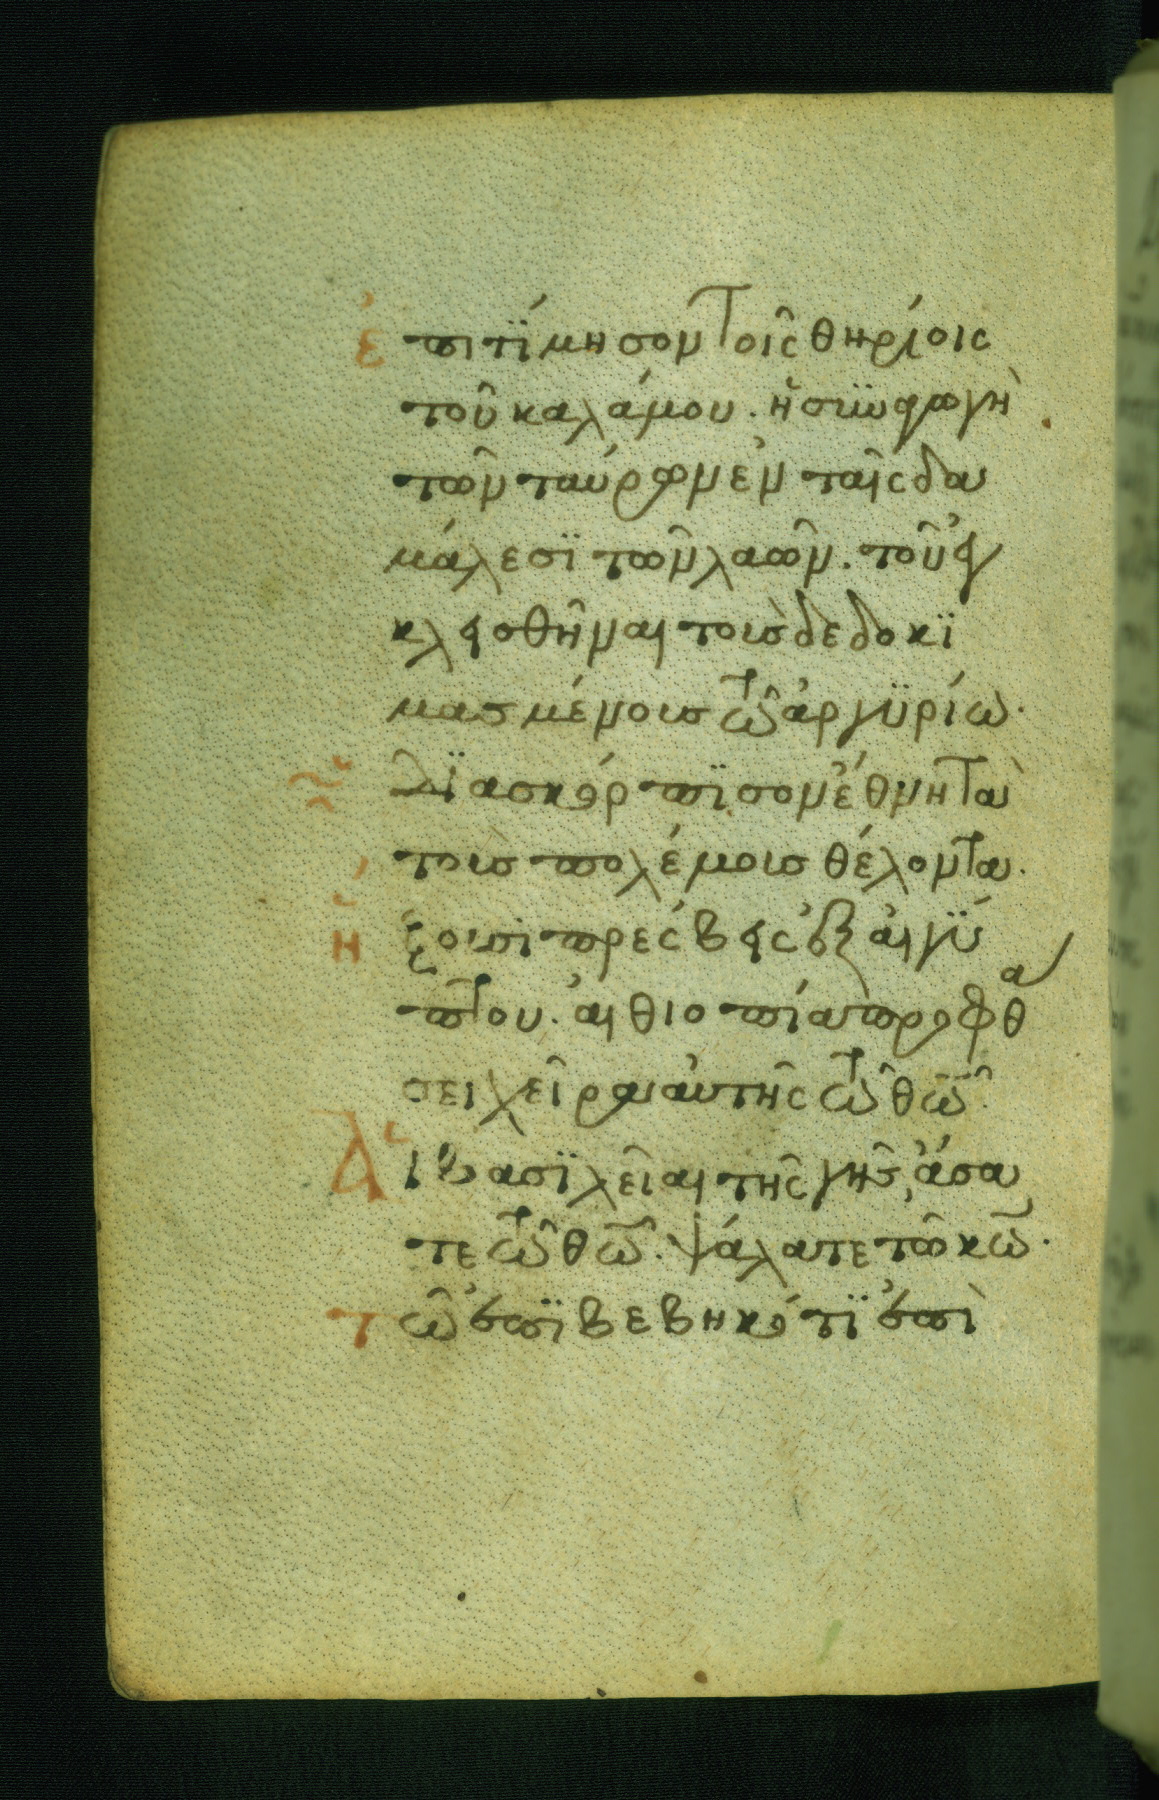 ἐπιτΐμησον τοῖς θηρίοις
τοῦ καλάμου. ἡ συναγωγὴ
τῶν ταύρων ἐν ταῖς δα
μάλεσϊ τῶν λαῶν. τοῦ ἐ
κλεισθῆναι τοὺς δεδοκϊ
μασμένους τῶ ἀργϋρίω.
Δϊασκόρπϊσον ἔθνη τὰ
τοὺς πολέμους θέλοντα.
ἥξουσι πρέσβεις ἐξ αἰγϋ
πτου. αἰθιοπία προφθά
σει χεῖρα αὐτῆς τῶ θῶ.
Αἱ βασϊλεῖαι τῆς γῆς, ἄσα
τε τῶ θῶ. ψάλατε τῶ κῶ.
τῶ ἐπϊβεβηκότϊ ἐπὶ